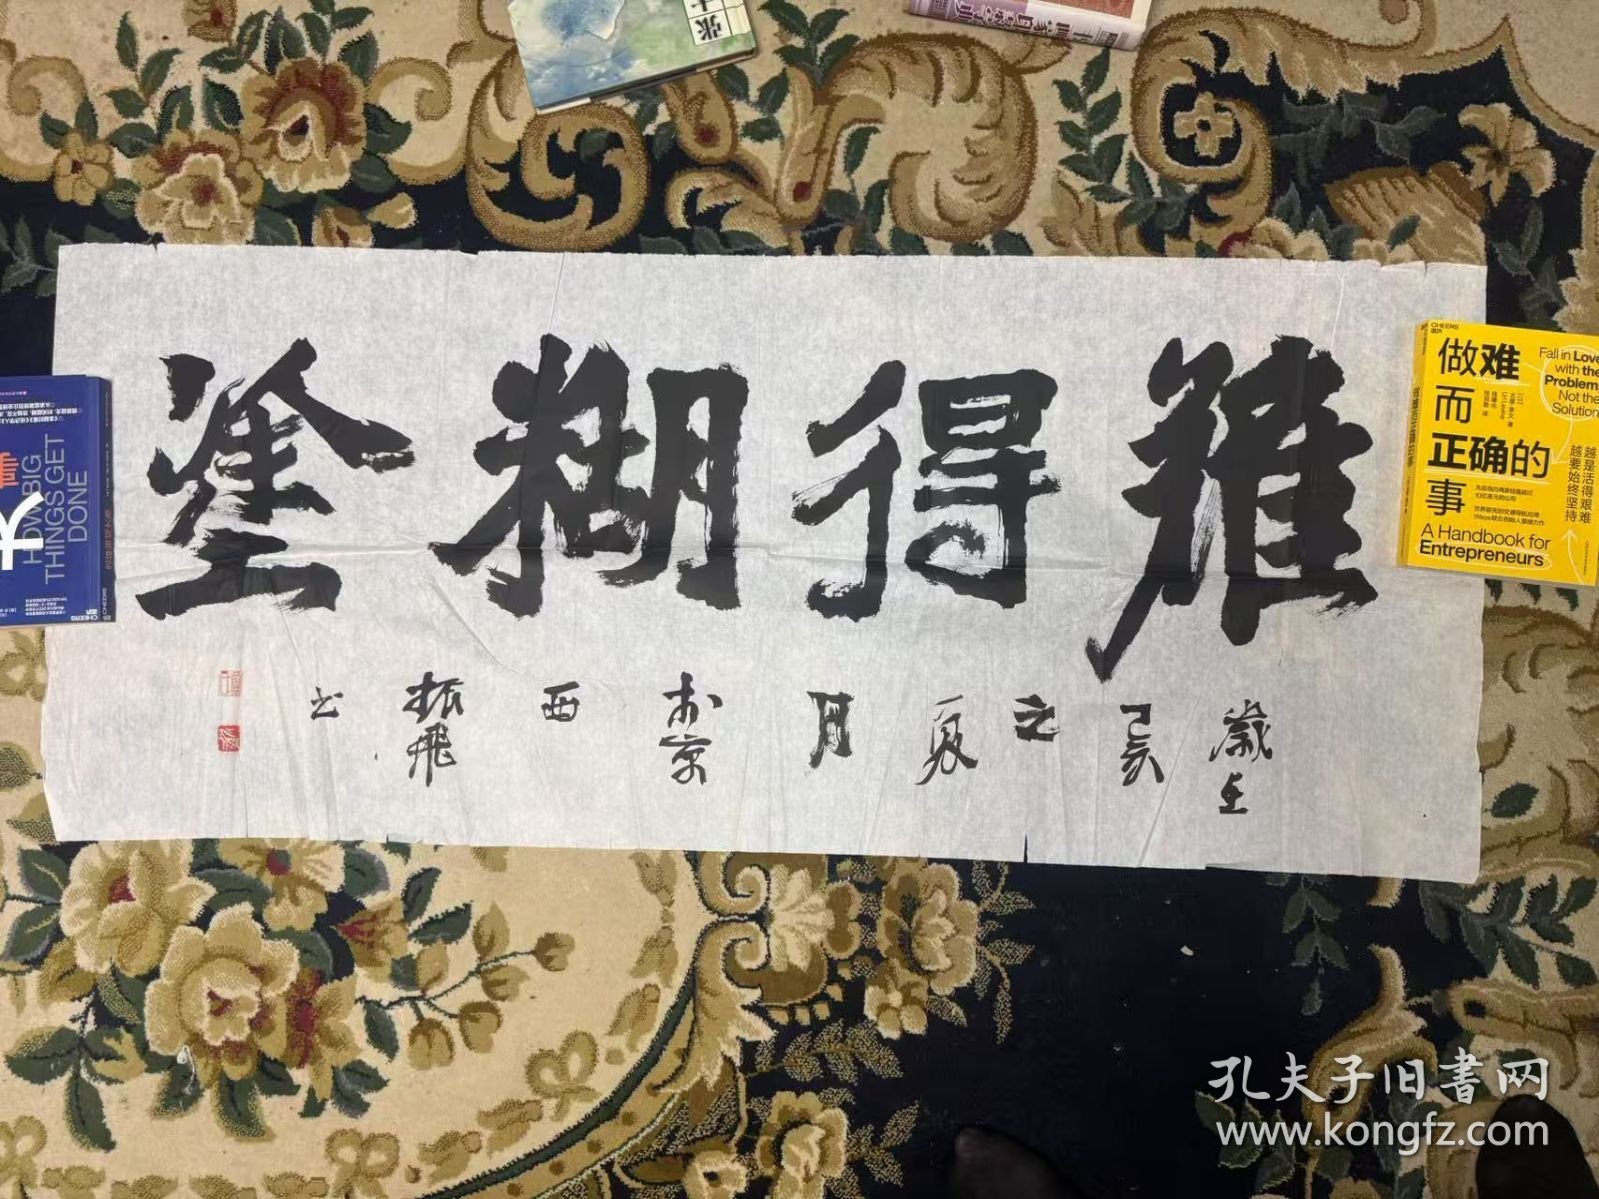 難得糊塗
歲在
己亥
之
夏
月
於京
西
振飛
书
做难
而
正确的
事
Fall in Love
with the
Problem,
Not the
Solution
越是活得艰难
越要始终坚持
A Handbook for
Entrepreneurs
CHEERS
湛庐
HOW BIG
THINGS GET
DONE
CHEERS
孔夫子旧书网
www.kongfz.com